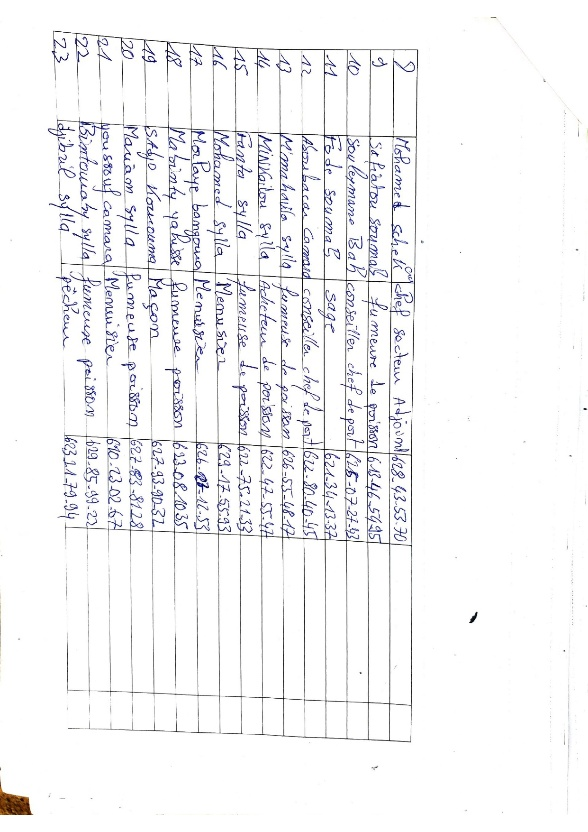 8 Mohamed Schek chef secteur Adjoint 628.43.53.70
9 Safiatou Soumah fumeuse de poisson 613-46-54-95
10 Souleymane Bah conseiller chef de port 626-07-27-43
11 Fode Soumah sage 621.34-13-37
12 Aboubacar Camara conseiller chef de port 622-80-40-45
13 M'mahawa Sylla fumeuse de poisson 626-55-48-17
14 Minkailou Sylla Acheteur de poisson 622-47-55-47
15 Fanta Sylla fumeuse de poisson 622-75-21-33
16 Mohamed Sylla Menuisier 629-17-55-93
17 Morlaye bangoura Menuisier 626. 12-53
18 Mabinty fumeuse poisson 623.08.10.35
19 Maçon 627-93-90-32
20 Mariam Sylla fumeuse poisson 622-83-8128
21 youssouf camara Menuisier 610-23-02-67
22 Sylla fumeuse poisson 629.85-99-22
23 djibril sylla pêcheur 623.21-79-94